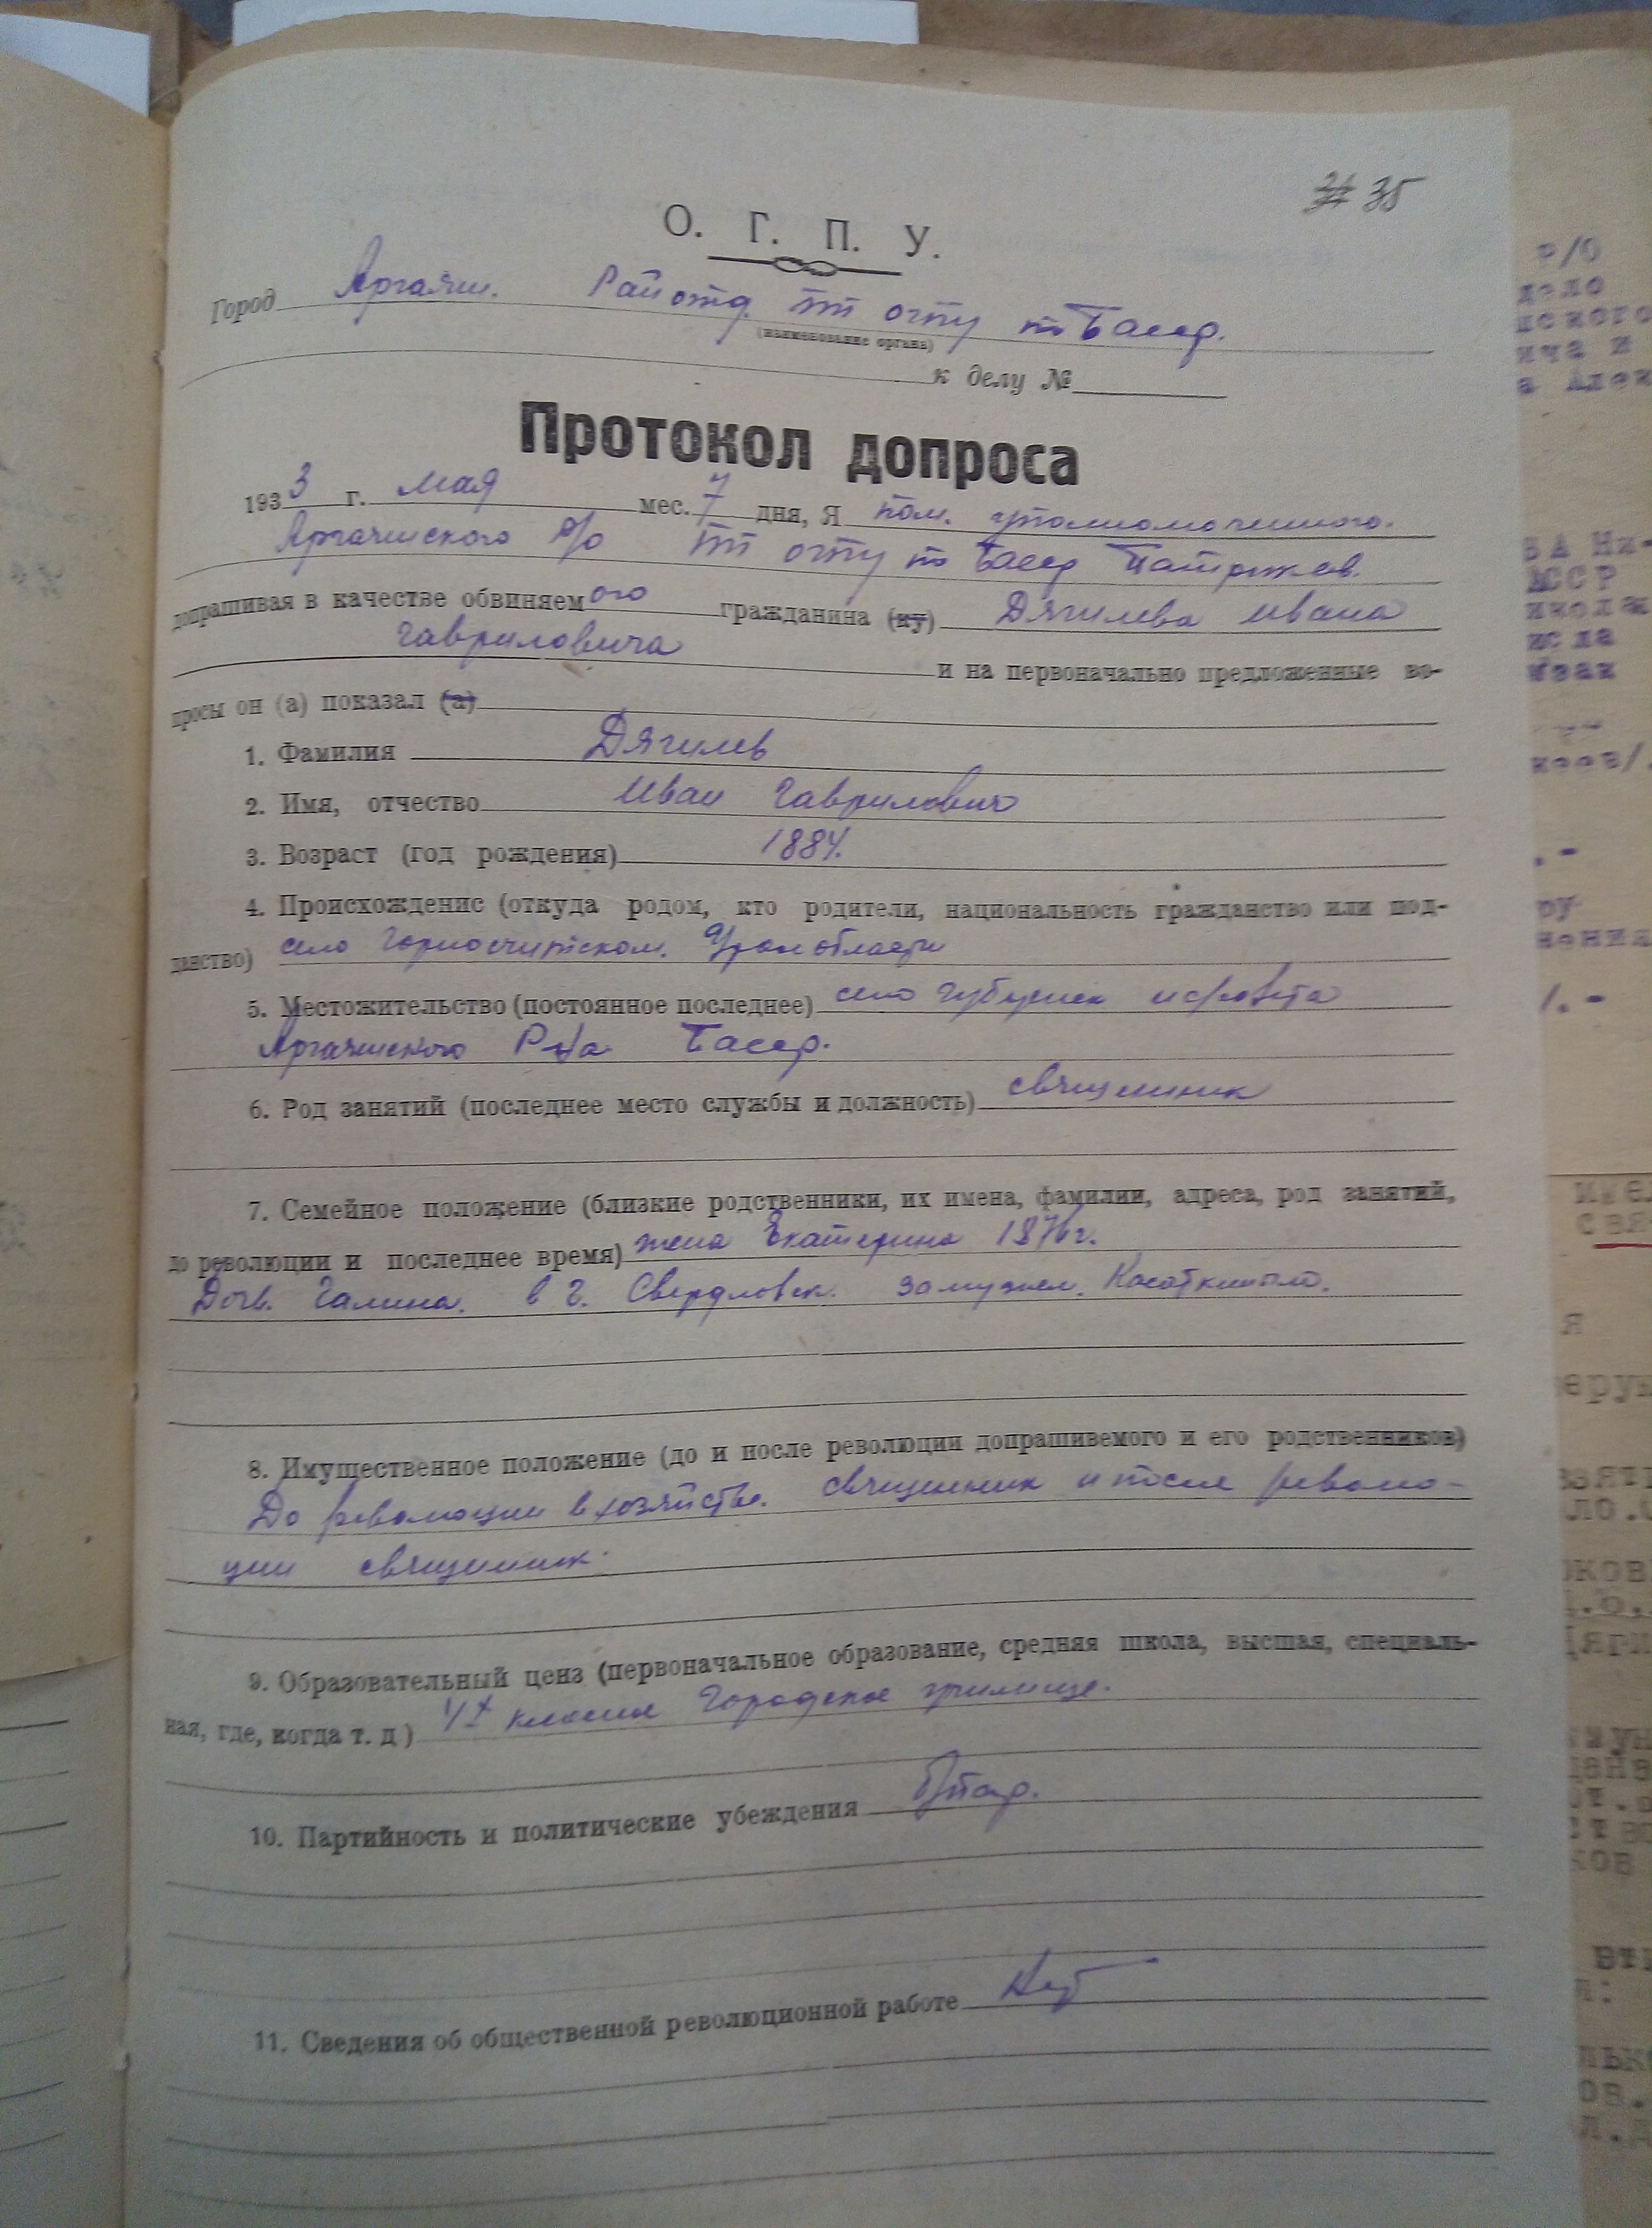 35
О. Г. П. У.
Город Аргаяш. Райотд. ПП ОГПУ по Башср.
(наименование органа)
к делу №
Протокол допроса
1933 г. мая мес. 7 дня, Я пом. уполномоченного.
Аргаяшского р/о ПП ОГПУ по Башср
допрашивая в качестве обвиняемого гражданина (ку) Дягилева Ивана
Гавриловича и на первоначально предложенные во-
просы он (а) показал (а)
1. Фамилия Дягилев
2. Имя, отчество Иван Гаврилович
3. Возраст (год рождения) 1884.
4. Происхождение (откуда родом, кто родители, национальность гражданство или под-
данство) село Горнощитском. Уралобласти
5. Местожительство (постоянное последнее) село
Аргаяшского Р-на Башср.
6. Род занятий (последнее место службы и должность) священник
7. Семейное положение (близкие родственники, их имена, фамилии, адреса, род занятий,
до революции и последнее время) жена Екатерина 1876 г.
Дочь. Галина. в г. Свердловск. замужем.
8. Имущественное положение (до и после революции допрашиваемого и его родственников)
До революции в хозяйстве. священник и после револю-
ции священник.
9. Образовательный ценз (первоначальное образование, средняя школа, высшая, специаль-
ная, где, когда т. д) 4х классное Городское училище.
10. Партийность и политические убеждения б/пар.
11. Сведения об общественной революционной работе Нет